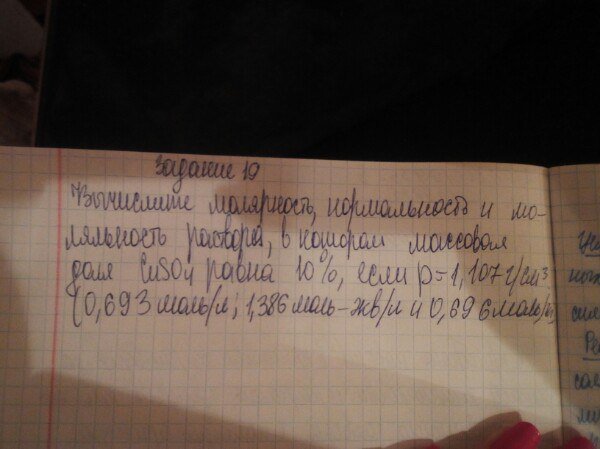 Задание 19
Вычислите молярность, нормальность и мо-
ляльность раствора, в котором массовая
доля CuSO4 равна 10%, если ρ=1,107 г/см³
(0,693 моль/л; 1,386 моль-экв/л и 0,696 моль/